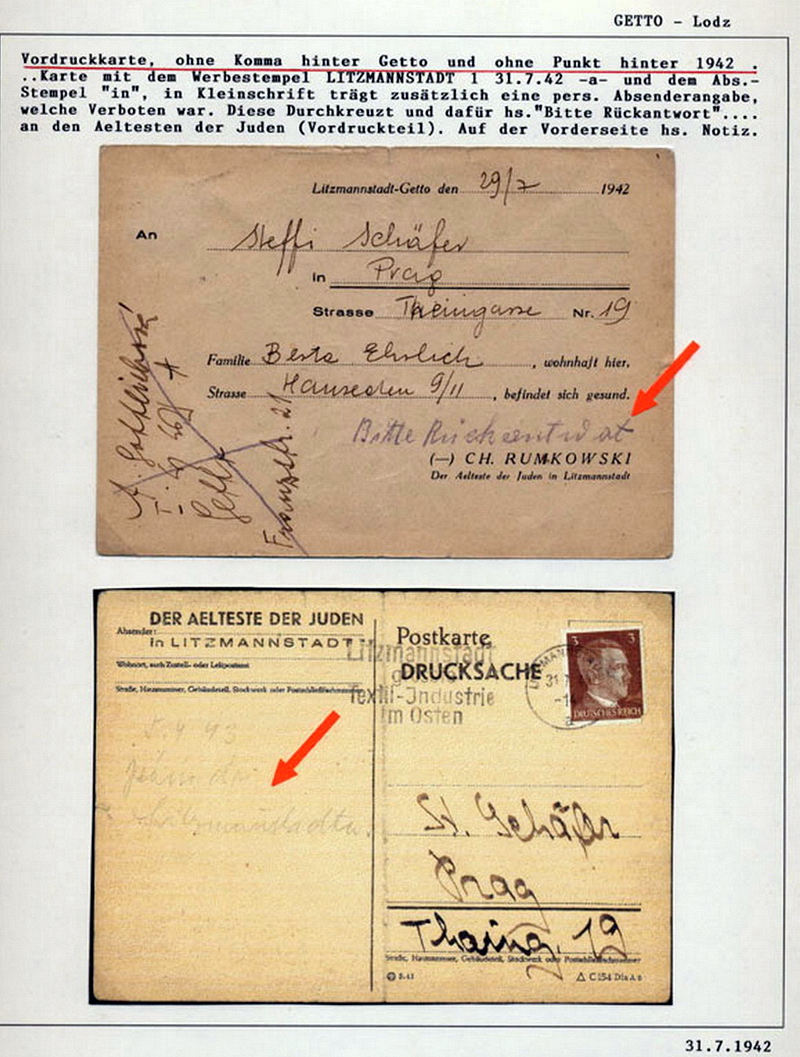 GETTO - Lodz
Vordruckkarte, ohne Komma hinter Getto und ohne Punkt hinter 1942 .
..Karte mit dem Werbestempel LITZMANNSTADT 1 31.7.42 -a- und dem Abs.-
Stempel "in", in Kleinschrift trägt zusätzlich eine pers. Absenderangabe,
welche Verboten war. Diese Durchkreuzt und dafür hs."Bitte Rückantwort"....
an den Aeltesten der Juden (Vordruckteil). Auf der Vorderseite hs. Notiz.
Litzmannstadt-Getto den 29/7 1942
An Steffi Schäfer
in Prag
Strasse Theingasse Nr. 19
Familie Berta Ehrlich, wohnhaft hier,
Strasse Hanseaten 9/11, befindet sich gesund.
Bitte Rückantwot
(—) CH. RUMKOWSKI
Der Aelteste der Juden in Litzmannstadt
Getto
Franzstr. 21
DER AELTESTE DER JUDEN
Absender:
in LITZMANNSTADT
Wohnort, auch Zustell- oder Leitpostamt
Straße, Hausnummer, Gebäudeteil, Stockwerk oder Postschließfachnummer
Postkarte
DRUCKSACHE
Litzmannstadt
Textil-Industrie
im Osten
31
3 3
DEUTSCHES REICH
5.4 43
Litzmannstadt
St. Schäfer
Prag
Thaing. 19
Straße, Hausnummer, Gebäudeteil, Stockwerk oder Postschließfachnummer
C154 Din A 6
31.7.1942